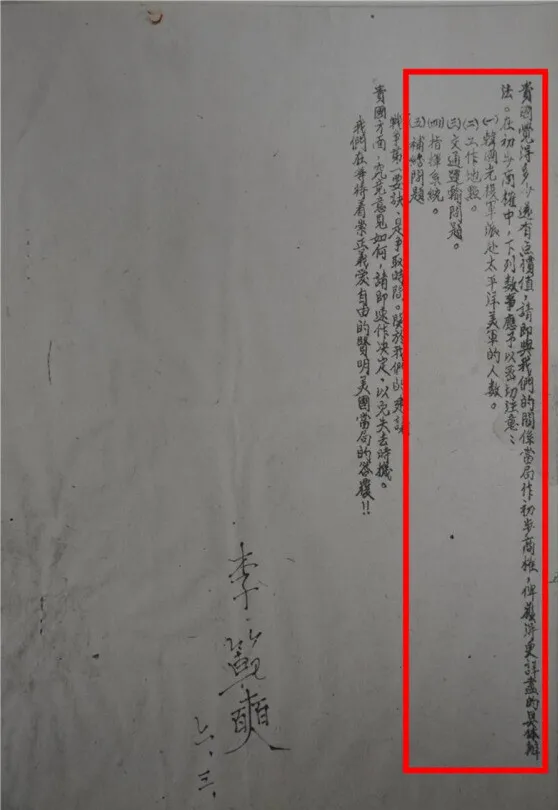 貴國覺得多少還有点價值，請即與我們的關係當局作初步商榷，俾獲得更詳盡的具体辦
法。在初步商榷中，下列数事應予以密切注意：
(一)韓國光復軍派赴太平洋美軍的人数。
(二)工作地點。
(三)交通運輸問題。
(四)指揮系統。
(五)補給問題
戰爭第一要訣，是爭取時間。関於我們的建議
貴國方面，究竟意見如何，請即速作决定，以免失去時機。
我們在等待着崇正義愛自由的賢明美國當局的答覆!!
李範奭
六、三、